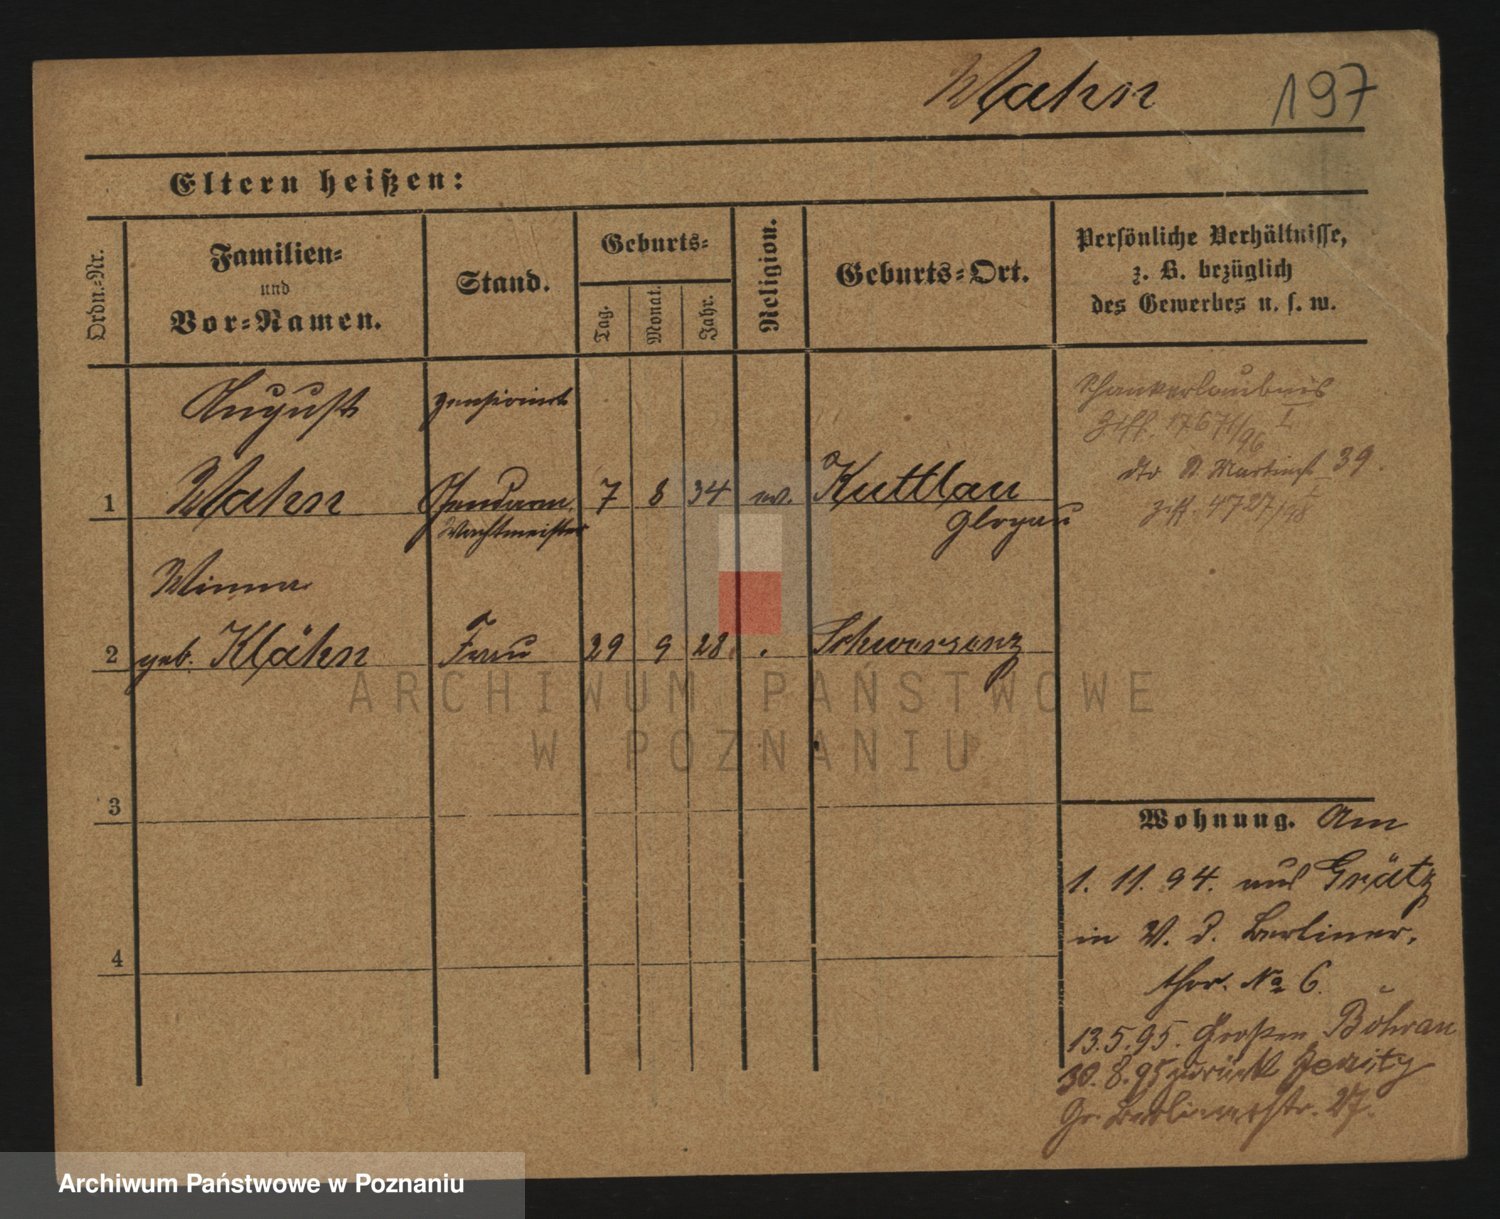 Wahn 197
Eltern heißen:
Ordn.-Nr.
Familien-
und
Vor-Namen.
Stand.
Geburts-
Tag.
Monat.
Jahr.
Religion.
Geburts-Ort.
Persönliche Verhältnisse,
z. B. bezüglich
des Gewerbes u. s. w.
August pensionirt
1 Wahn Gendarm. 7 8 34 ev. Kuttlau
Wachtmeister Glogau
Schankerlaubnis
Ziff. 17671/96 I
dto St. Martinst. 39.
Ziff. 4727/98 I
Minna
2 geb. Klähn Frau 29 9 28. Schwersenz
3
4
Wohnung. Am
1. 11. 94. aus Grätz
in V. d. Berliner,
thor. No 6.
13.5.95. Bohrau
30. 8. 95 zurück Jersitz
Gr. Berlinerstr. 27.
ARCHIWUM PAŃSTWOWE
W POZNANIU
Archiwum Państwowe w Poznaniu